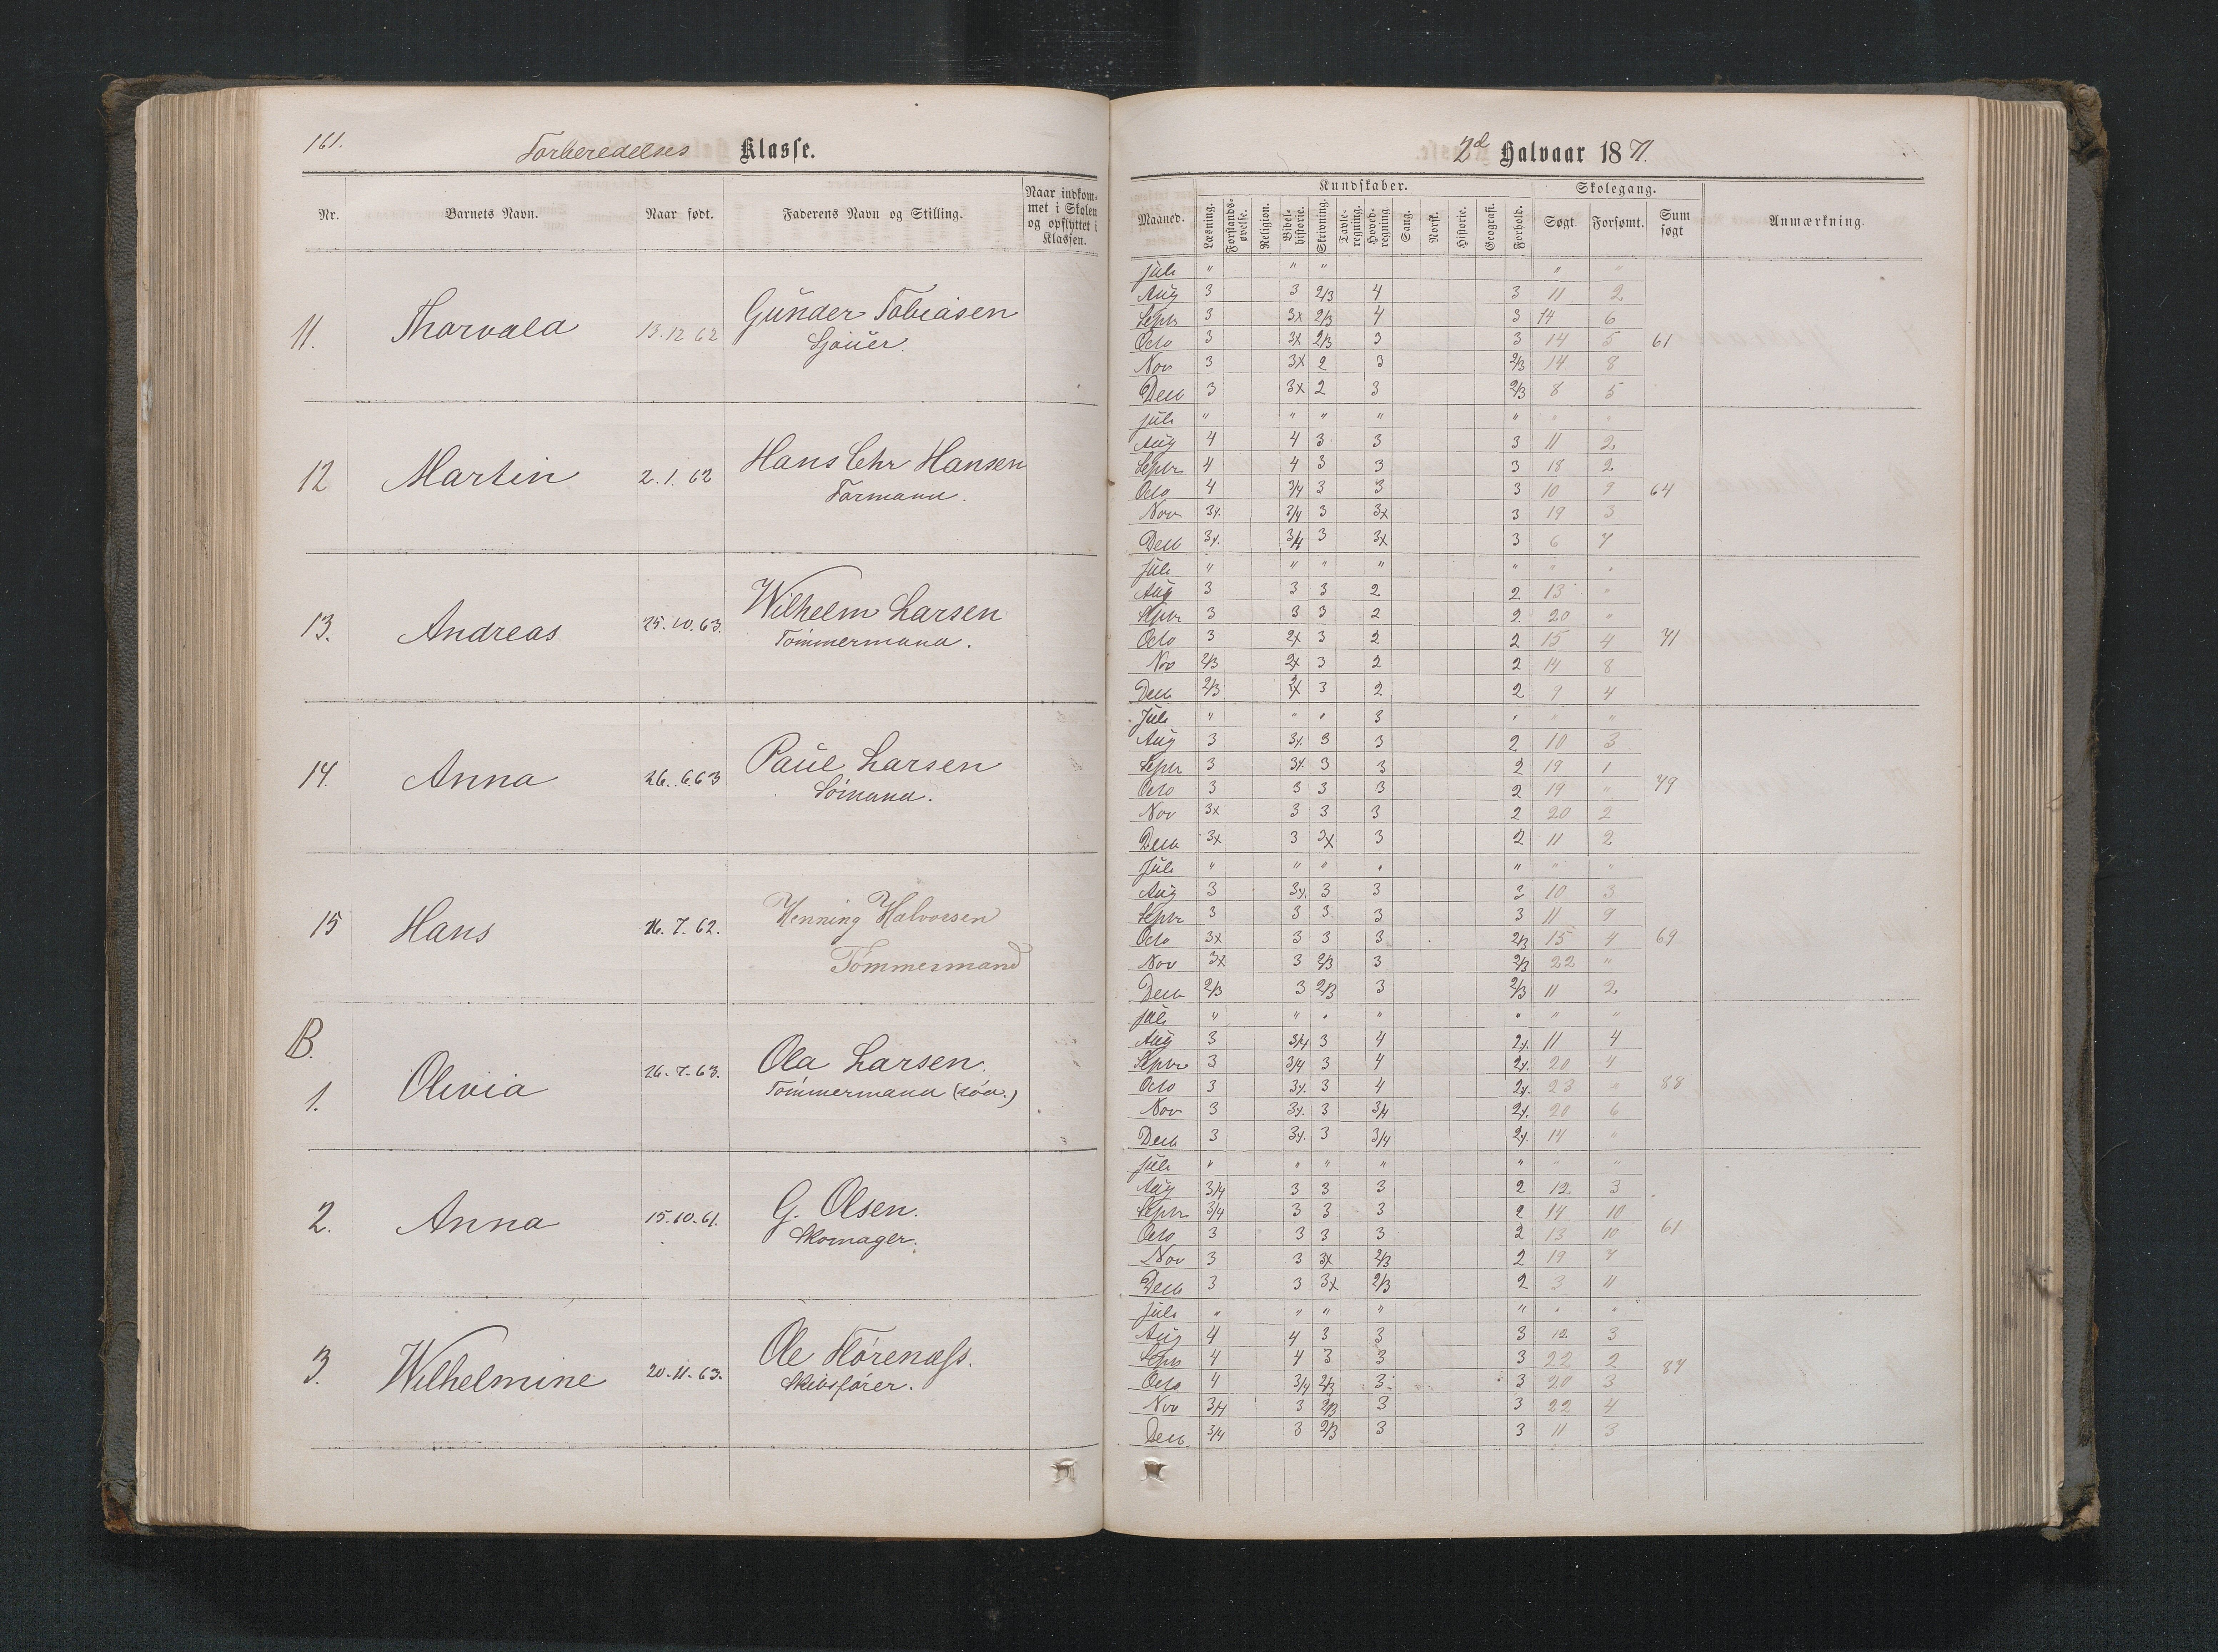 161.
Forberedelses Klasse.
Nr.
Barnets Navn.
Naar født.
Faderens Navn og Stilling.
Naar indkom-
met i Skolen
og opflyttet i
Klassen.
11.
Thorvald
13.12 62
Gunder Tobiasen
Sjouer.
12
Martin
2.1.62
Hans Chr Hansen
Formand.
13.
Andreas
25.10.63.
Wilhelm Larsen
Tømmermand.
14.
Anna
26.6.63
Paul Larsen
Sømand.
15
Hans
16.7.62.
Henning Halvorsen
Tømmermand
B.
1.
Olivia
26-7-63.
Ola Larsen.
Tømmermand
2.
Anna
15-10-61.
G. Olsen.
Skomager.
3.
Wilhelmine
20-11-63.
Ole Flørenæss.
Skibsfører.
2d Halvaar 1871.
Maaned.
Kundskaber.
Læsning.
Forstands-
øvelse.
Religion.
Bibel-
historie.
Skrivning.
Tavle-
regning.
Hoved-
regning.
Sang.
Norsk.
Historie.
Geografi.
Forhold.
Skolegang.
Søgt.
Forsømt.
Sum
søgt
Anmærkning.
Juli " " " " "
Aug 3 3 2/3 4 3 11 2
Septr 3 3x 2/3 4 3 14 6
Octo 3 3x 2/3 3 3 14 5 61
Nov 3 3x 2 3 2/3 14 8
Decb 3 3x 2 3 2/3 8 5
Juli " " " " " " "
Aug 4 4 3 3 3 11 2
Septr 4 4 3 3 3 18 2
Octo 4 3/4 3 3 3 10 9 64
Nov 3x 3/4 3 3x 3 19 3
Decb 3x 3/4 3 3x 3 6 7
Juli " " " " " " "
Aug 3 3 3 2 2 13 "
Septr 3 3 3 2 2 20 "
Octo 3 2x 3 2 2 15 4 71
Nov 2/3 2x 3 2 2 14 8
Decb 2/3 2x 3 2 2 9 4
Juli " " " 3 " " "
Aug 3 3x 3 3 2 10 3
Septr 3 3x 3 3 2 19 1
Octo 3 3 3 3 2 19 " 79
Nov 3x 3 3 3 2 20 2
Decb 3x 3 3x 3 2 11 2
Juli " " " " " " "
Aug 3 3x 3 3 3 10 3
Septr 3 3 3 3 3 11 9
Octo 3x 3 3 3 2/3 15 4 69
Nov 3x 3 2/3 3 2/3 22 "
Decb 2/3 3 2/3 3 2/3 11 2
Juli " " " " " " "
Aug 3 3/4 3 4 2x 11 4
Septr 3 3/4 3 4 2x 20 4
Octo 3 3x 3 4 2x 23 " 88
Nov 3 3x 3 3/4 2x 20 6
Decb 3 3x 3 3/4 2x 14 "
Juli " " " " " " "
Aug 3/4 3 3 3 2 12 3
Septr 3/4 3 3 3 2 14 10
Octo 3 3 3 3 2 13 10 61
Nov 3 3 3x 2/3 2 19 7
Decb 3 3 3x 2/3 2 3 11
Juli " " " " " " "
Aug 4 4 3 3 3 12 3
Septr 4 4 3 3 3 22 2
Octo 4 3/4 2/3 3 3 20 3 87
Nov 3/4 3 2/3 3 3 22 4
Decb. 3/4 3 2/3 3 3 11 3